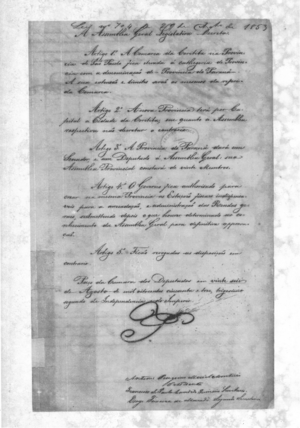 A Assembléa Geral Legislativa Decreta:
Artigo 1º A Comarca da Coritiba na Provin-
cia de São Paulo fica elevada á cathegoria de Provin-
cia com a denominação de Provincia do Paraná.
A sua extensão e limites serão os mesmos da refer-
da Comarca.
Artigo 2º A nova Provincia terá por Ca-
pital a Cidade da Coritiba, em quanto a Assembléa
respectiva não decretar o contrario.
Artigo 3º A Provincia do Paraná dará um
Senador e um Deputado á Assembléa Geral: sua
Assembléa Provincial constará de vinte Membros.
Artigo 4º O Governo fica authorisado para
crear na mesma Provincia as Estações fiscaes indispensa-
veis para a arrecadação, e administração das Rendas ge-
raes, submettendo depois o que houver determinado ao co-
nhecimento da Assembléa Geral para definitiva approva-
ção.
Artigo 5º Ficão revogadas as disposições em
contrario.
Paço da Camara dos Deputados em vinte
de Agosto de mil oitocentos cincoenta e tres, trigesimo
segundo da Independencia e do Imperio.
Presidente
Secretario